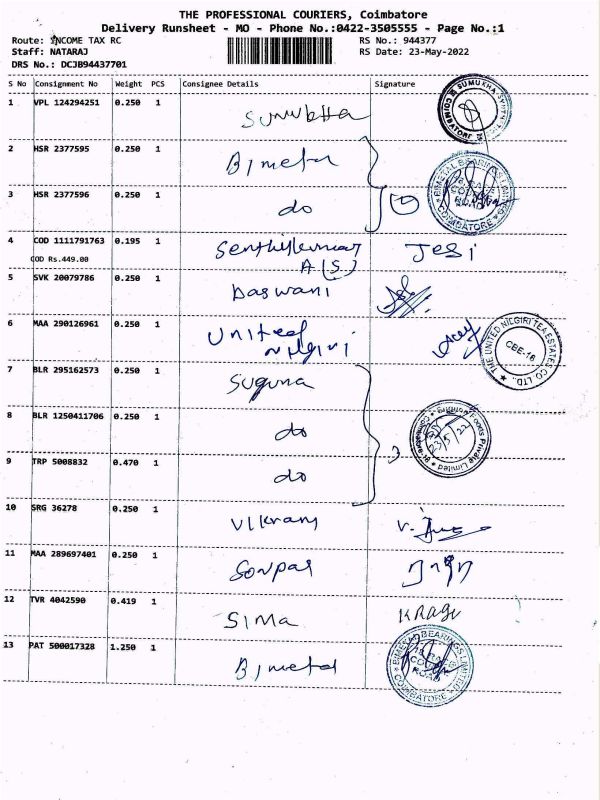 THE PROFESSIONAL COURIERS, Coimbatore
Delivery Runsheet - MO - Phone No.:0422-3505555 - Page No.:1
Route: INCOME TAX RC RS No.: 944377
Staff: NATARAJ RS Date: 23-May-2022
DRS No.: DCJB94437701
S No Consignment No Weight PCS Consignee Details Signature
1 VPL 124294251 0.250 1 Sumukha
2 HSR 2377595 0.250 1 Bimetal
3 HSR 2377596 0.250 1 do
BIMETAL BEARINGS LIMITED
COIMBATORE
4 COD 1111791763 0.195 1 Jesi
COD Rs.449.00
5 SVK 20079786 0.250 1 Daswani
6 MAA 290126961 0.250 1 United
Nilgiri
THE UNITED NILGIRI TEA ESTATES CO LTD.,
CBE-18
7 BLR 295162573 0.250 1 Suguna
8 BLR 1250411706 0.250 1 do
23/5/22
9 TRP 5008832 0.470 1 do
10 SRG 36278 0.250 1 Vikram
11 MAA 289697401 0.250 1 Sonpal
12 TVR 4042590 0.419 1 Sima
13 PAT 500017328 1.250 1 Bimetal
BIMETAL BEARINGS LIMITED
COIMBATORE